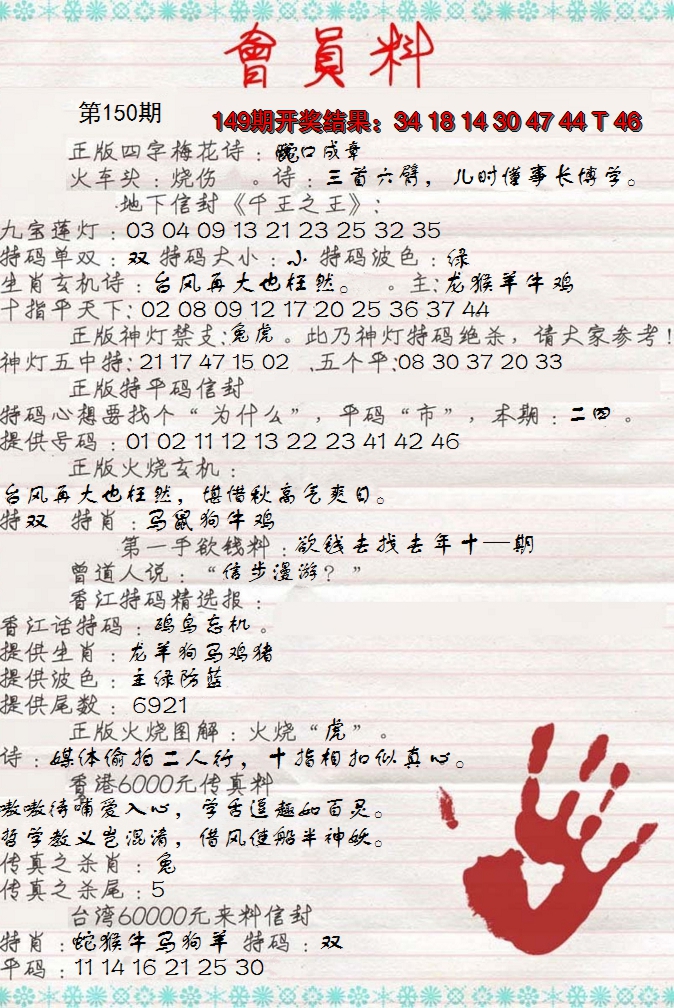 會員料
第150期
149期开奖结果：34 18 14 30 47 44 T 46
正版四字梅花诗：蛇口成章
火车头：烧伤 。诗：三首六臂，儿时懂事长博学。
地下信封《千王之王》：
九宝莲灯：03 04 09 13 21 23 25 32 35
特码单双：双 特码大小：小 特码波色：绿
生肖玄机诗：台风再大也枉然。 。主：龙猴羊牛鸡
十指平天下：02 08 09 12 17 20 25 36 37 44
正版神灯禁支：兔虎。此乃神灯特码绝杀，请大家参考！
神灯五中特：21 17 47 15 02 .五个平：08 30 37 20 33
正版特平码信封
特码心想要找个“为什么”，平码“市”，本期：二四 。
提供号码：01 02 11 12 13 22 23 41 42 46
正版火烧玄机：
台风再大也枉然，堪借秋高气爽日。
特双 特肖：马鼠狗牛鸡
第一手欲钱料：欲钱去找去年十一期
曾道人说：“信步漫游？”
香江特码精选报：
香江话特码：鸥鸟忘机。
提供生肖：龙羊狗马鸡猪
提供波色：主绿防蓝
提供尾数：6921
正版火烧图解：火烧“虎”。
诗：媒体偷拍二人行，十指相扣似真心。
香港6000元传真料
嗷嗷待哺爱入心，学舌逗趣如百灵。
哲学教义岂混淆，借风使船半神妖。
传真之杀肖：兔
传真之杀尾：5
台湾60000元来料信封
特肖：蛇猴牛马狗羊 特码：双
平码：11 14 16 21 25 30